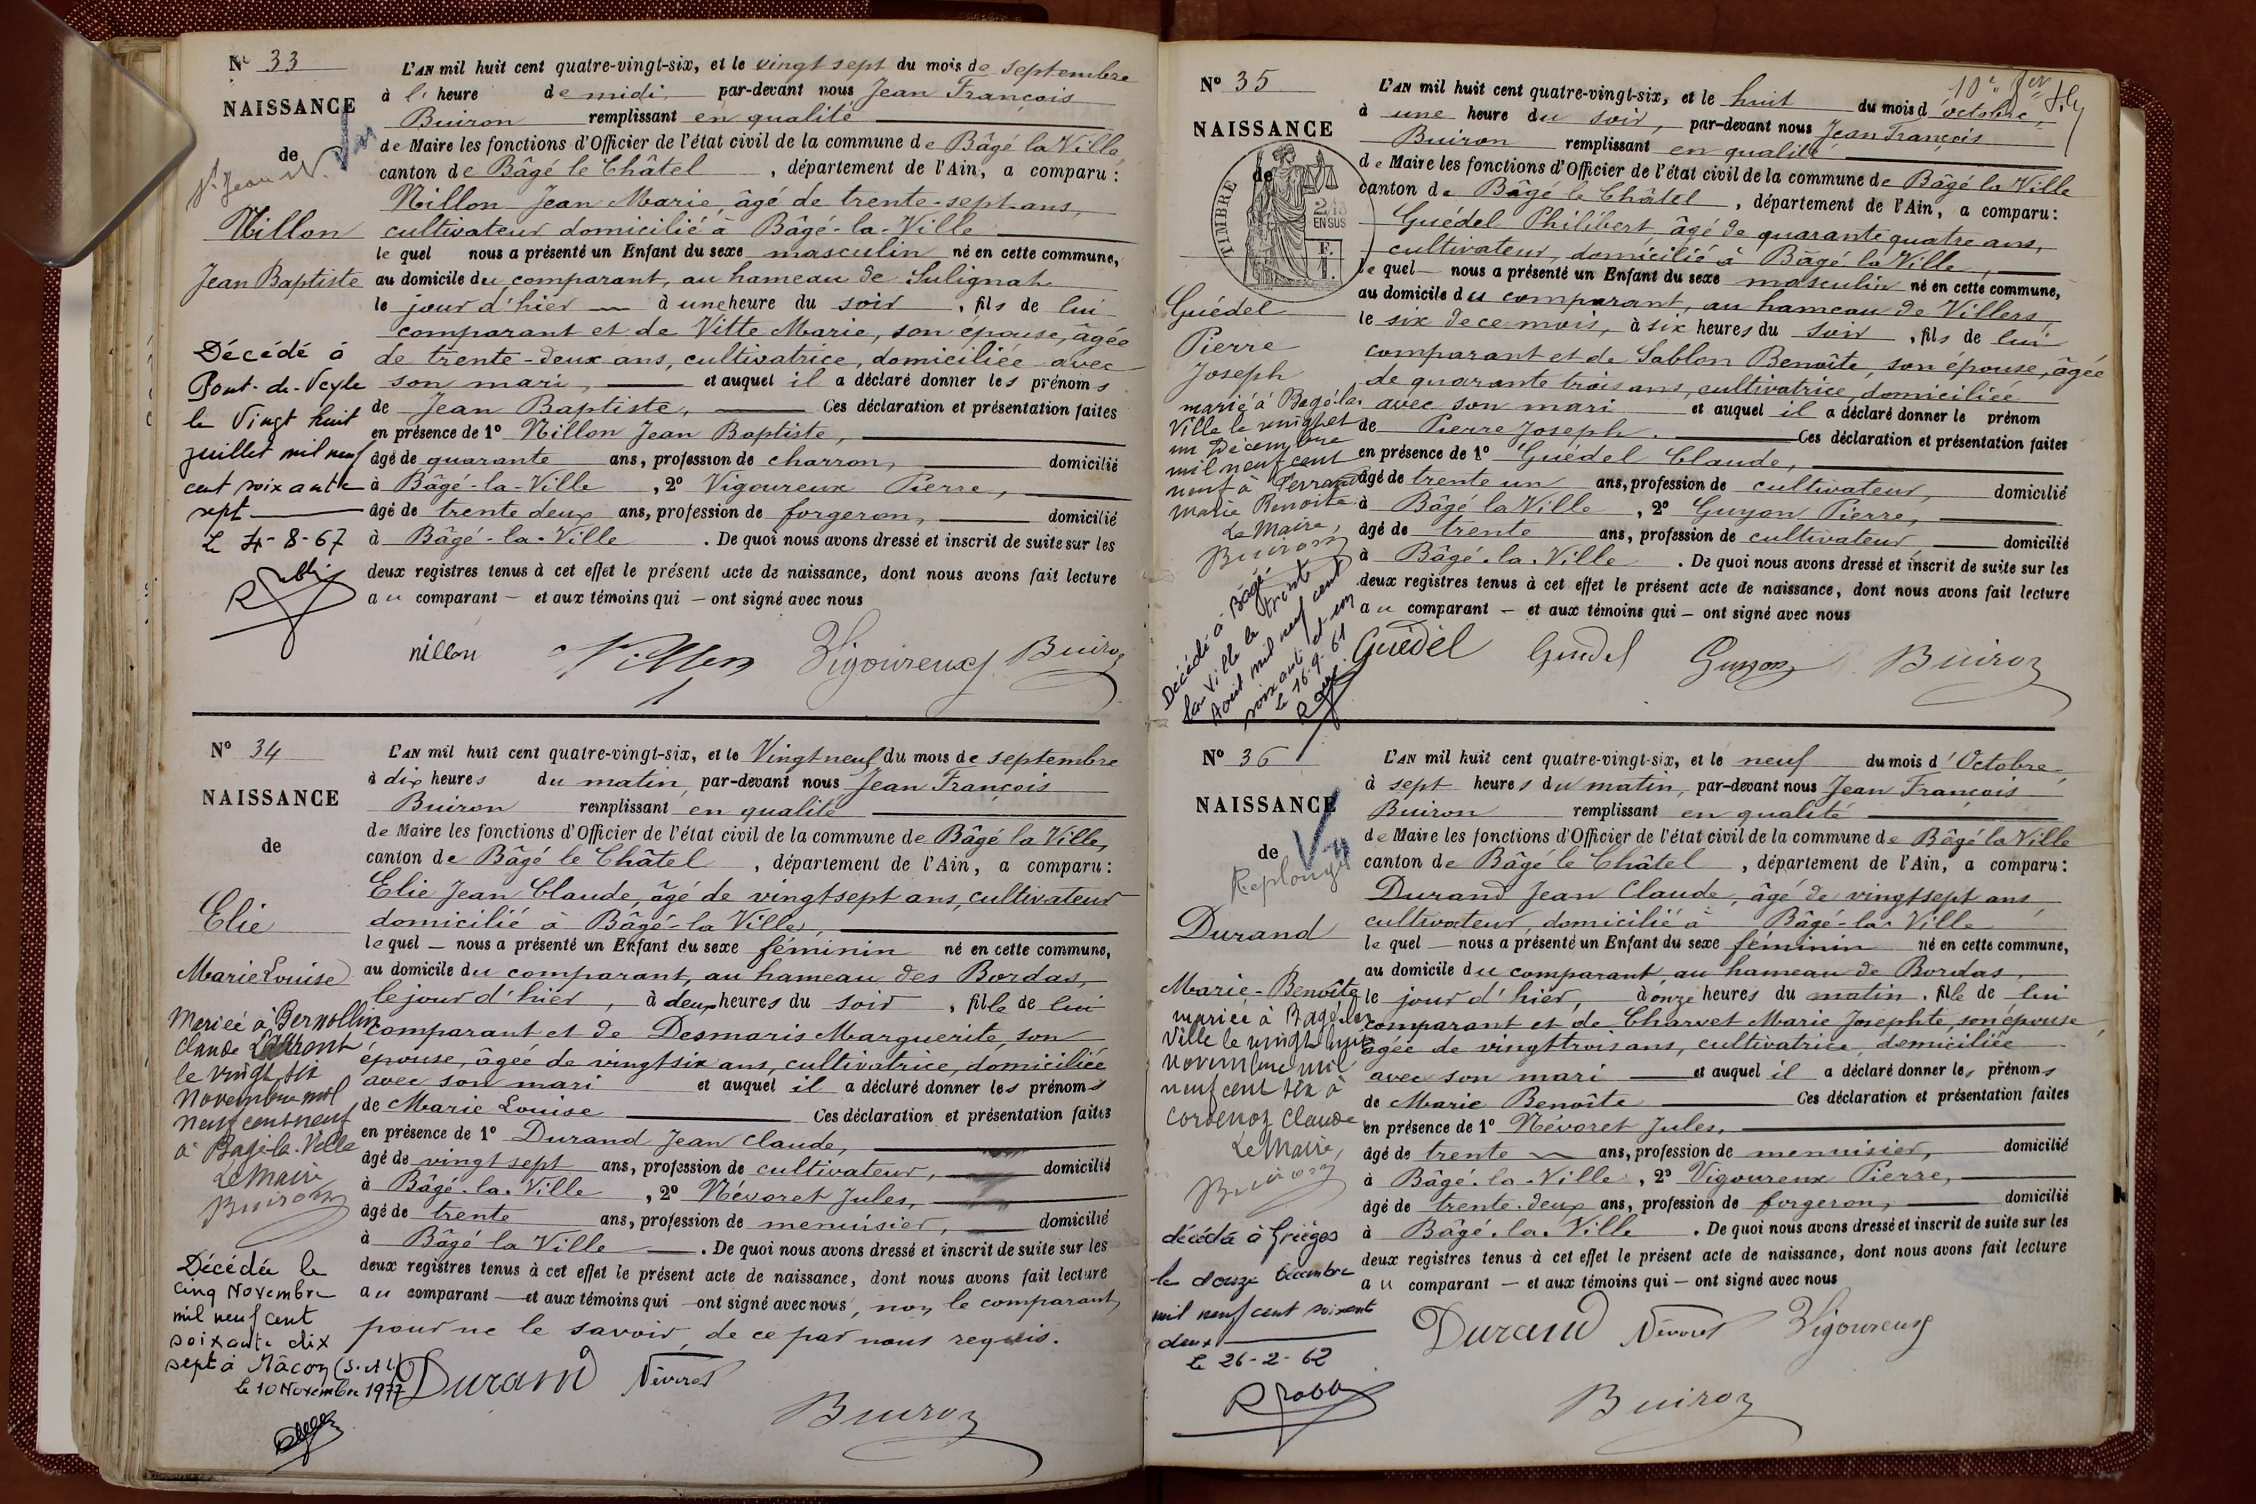 N° 33
NAISSANCE
de
St Jean
Nillon
Jean Baptiste
Décédé à
Pont-de-Veyle
le Vingt huit
juillet mil neuf
cent soixante
sept
Le 4-8-67
L'AN mil huit cent quatre-vingt-six, et le vingt sept du mois de septembre
à l' heure de midi par-devant nous Jean François
Buiron remplissant en qualité
de Maire les fonctions d'Officier de l'état civil de la commune de Bâgé la Ville
canton de Bâgé le Châtel, département de l'Ain, a comparu :
Nillon Jean Marie, âgé de trente-sept ans,
cultivateur domicilié à Bâgé-la-Ville
le quel nous a présenté un Enfant du sexe masculin né en cette commune,
au domicile du comparant, au hameau de Sulignat
le jour d'hier à une heure du soir, fils de lui
comparant et de Vitte Marie, son épouse, âgée
de trente-deux ans, cultivatrice, domiciliée avec
son mari, et auquel il a déclaré donner les prénoms
de Jean Baptiste, Ces déclaration et présentation faites
en présence de 1° Nillon Jean Baptiste,
âgé de quarante ans, profession de charron, domicilié
à Bâgé-la-Ville, 2° Vigoureux Pierre,
âgé de trente deux ans, profession de forgeron, domicilié
à Bâgé-la-Ville. De quoi nous avons dressé et inscrit de suite sur les
deux registres tenus à cet effet le présent acte de naissance, dont nous avons fait lecture
au comparant — et aux témoins qui — ont signé avec nous
nillon Nillon Vigoureux Buiron
N° 34
NAISSANCE
de
Elie
Marie Louise
Mariée à Bernollin
Claude
le vingt six
Novembre mil
neuf cent neuf
à Bagé-la-Ville
Le Maire
Buiron
Décédée le
cinq Novembre
mil neuf cent
soixante dix
sept à Mâcon (S. et L)
le 10 Novembre 1977
L'AN mil huit cent quatre-vingt-six, et le Vingt neuf du mois de septembre
à dix heures du matin, par-devant nous Jean François
Buiron remplissant en qualité
de Maire les fonctions d'Officier de l'état civil de la commune de Bâgé la Ville,
canton de Bâgé le Châtel, département de l'Ain, a comparu :
Elie Jean Claude, âgé de vingt sept ans, cultivateur
domicilié à Bâgé-la Ville,
le quel — nous a présenté un Enfant du sexe féminin né en cette commune,
au domicile du comparant, au hameau des Bordas,
le jour d'hier, à deux heures du soir, fille de lui
comparant et de Desmaris Marguerite, son
épouse, âgée de vingt six ans, cultivatrice, domiciliée
avec son mari et auquel il a déclaré donner les prénoms
de Marie Louise Ces déclaration et présentation faites
en présence de 1° Durand Jean Claude,
âgé de vingt sept ans, profession de cultivateur, domicilié
à Bâgé-la-Ville, 2° Névoret Jules,
âgé de trente ans, profession de menuisier, domicilié
à Bâgé la Ville. De quoi nous avons dressé et inscrit de suite sur les
deux registres tenus à cet effet le présent acte de naissance, dont nous avons fait lecture
au comparant — et aux témoins qui — ont signé avec nous, non le comparant,
pour ne le savoir, de ce par nous requis.
Durand Névoret
Buiron
N° 35
NAISSANCE
de
TIMBRE
2/10
EN SUS
Guédel
Pierre
Joseph
marié à Bagé la
Ville le vingt et
un Décembre
mil neuf cent
neuf à Ferrand
Marie Benoite
Le Maire,
Buiron
Décédé à Bâgé
la Ville le trente
Aout mil neuf cent
soixante et un
Le 16.9.61
L'AN mil huit cent quatre-vingt-six, et le huit du mois d'octobre,
à une heure du soir, par-devant nous Jean François
Buiron remplissant en qualité
de Maire les fonctions d'Officier de l'état civil de la commune de Bâgé la Ville
canton de Bâgé le Châtel, département de l'Ain, a comparu :
Guédel Philibert âgé de quarante quatre ans,
cultivateur, domicilié à Bâgé la Ville,
le quel — nous a présenté un Enfant du sexe masculin né en cette commune,
au domicile du comparant, au hameau de Villers,
le six de ce mois, à six heures du soir, fils de lui
comparant et de Sablon Benoîte, son épouse, âgée
de quarante trois ans, cultivatrice, domiciliée
avec son mari et auquel il a déclaré donner le prénom
de Pierre Joseph. Ces déclaration et présentation faites
en présence de 1° Guédel Claude,
âgé de trente un ans, profession de cultivateur, domicilié
à Bâgé la Ville, 2° Guyon Pierre,
âgé de trente ans, profession de cultivateur, domicilié
à Bâgé-la-Ville. De quoi nous avons dressé et inscrit de suite sur les
deux registres tenus à cet effet le présent acte de naissance, dont nous avons fait lecture
au comparant — et aux témoins qui — ont signé avec nous
Guédel Guédel Guyon Buiron
N° 36
NAISSANCE
de
Vu
Replonges
Durand
Marie-Benoîte
mariée à Bagé la
Ville le vingt huit
novembre mil
neuf cent six à
Cordenoz Claude
Le Maire,
Buiron
décédée à Grièges
le douze Décembre
mil neuf cent soixante
deux
Le 26-2-62
L'AN mil huit cent quatre-vingt-six, et le neuf du mois d'Octobre,
à sept heures du matin, par-devant nous Jean François
Buiron remplissant en qualité
de Maire les fonctions d'Officier de l'état civil de la commune de Bâgé la Ville
canton de Bâgé le Châtel, département de l'Ain, a comparu :
Durand Jean Claude, âgé de vingt sept ans,
cultivateur, domicilié à Bâgé-la-Ville
le quel — nous a présenté un Enfant du sexe féminin né en cette commune,
au domicile du comparant au hameau de Bordas,
le jour d'hier, à onze heures du matin, fille de lui
comparant et de Charvet Marie Josephte, son épouse,
âgée de vingt trois ans, cultivatrice, domiciliée
avec son mari et auquel il a déclaré donner les prénoms
de Marie Benoîte Ces déclaration et présentation faites
en présence de 1° Névoret Jules,
âgé de trente ans, profession de menuisier, domicilié
à Bâgé-la-Ville, 2° Vigoureux Pierre,
âgé de trente-deux ans, profession de forgeron, domicilié
à Bâgé-la-Ville. De quoi nous avons dressé et inscrit de suite sur les
deux registres tenus à cet effet le présent acte de naissance, dont nous avons fait lecture
au comparant — et aux témoins qui — ont signé avec nous
Durand Névoret Vigoureux
Buiron